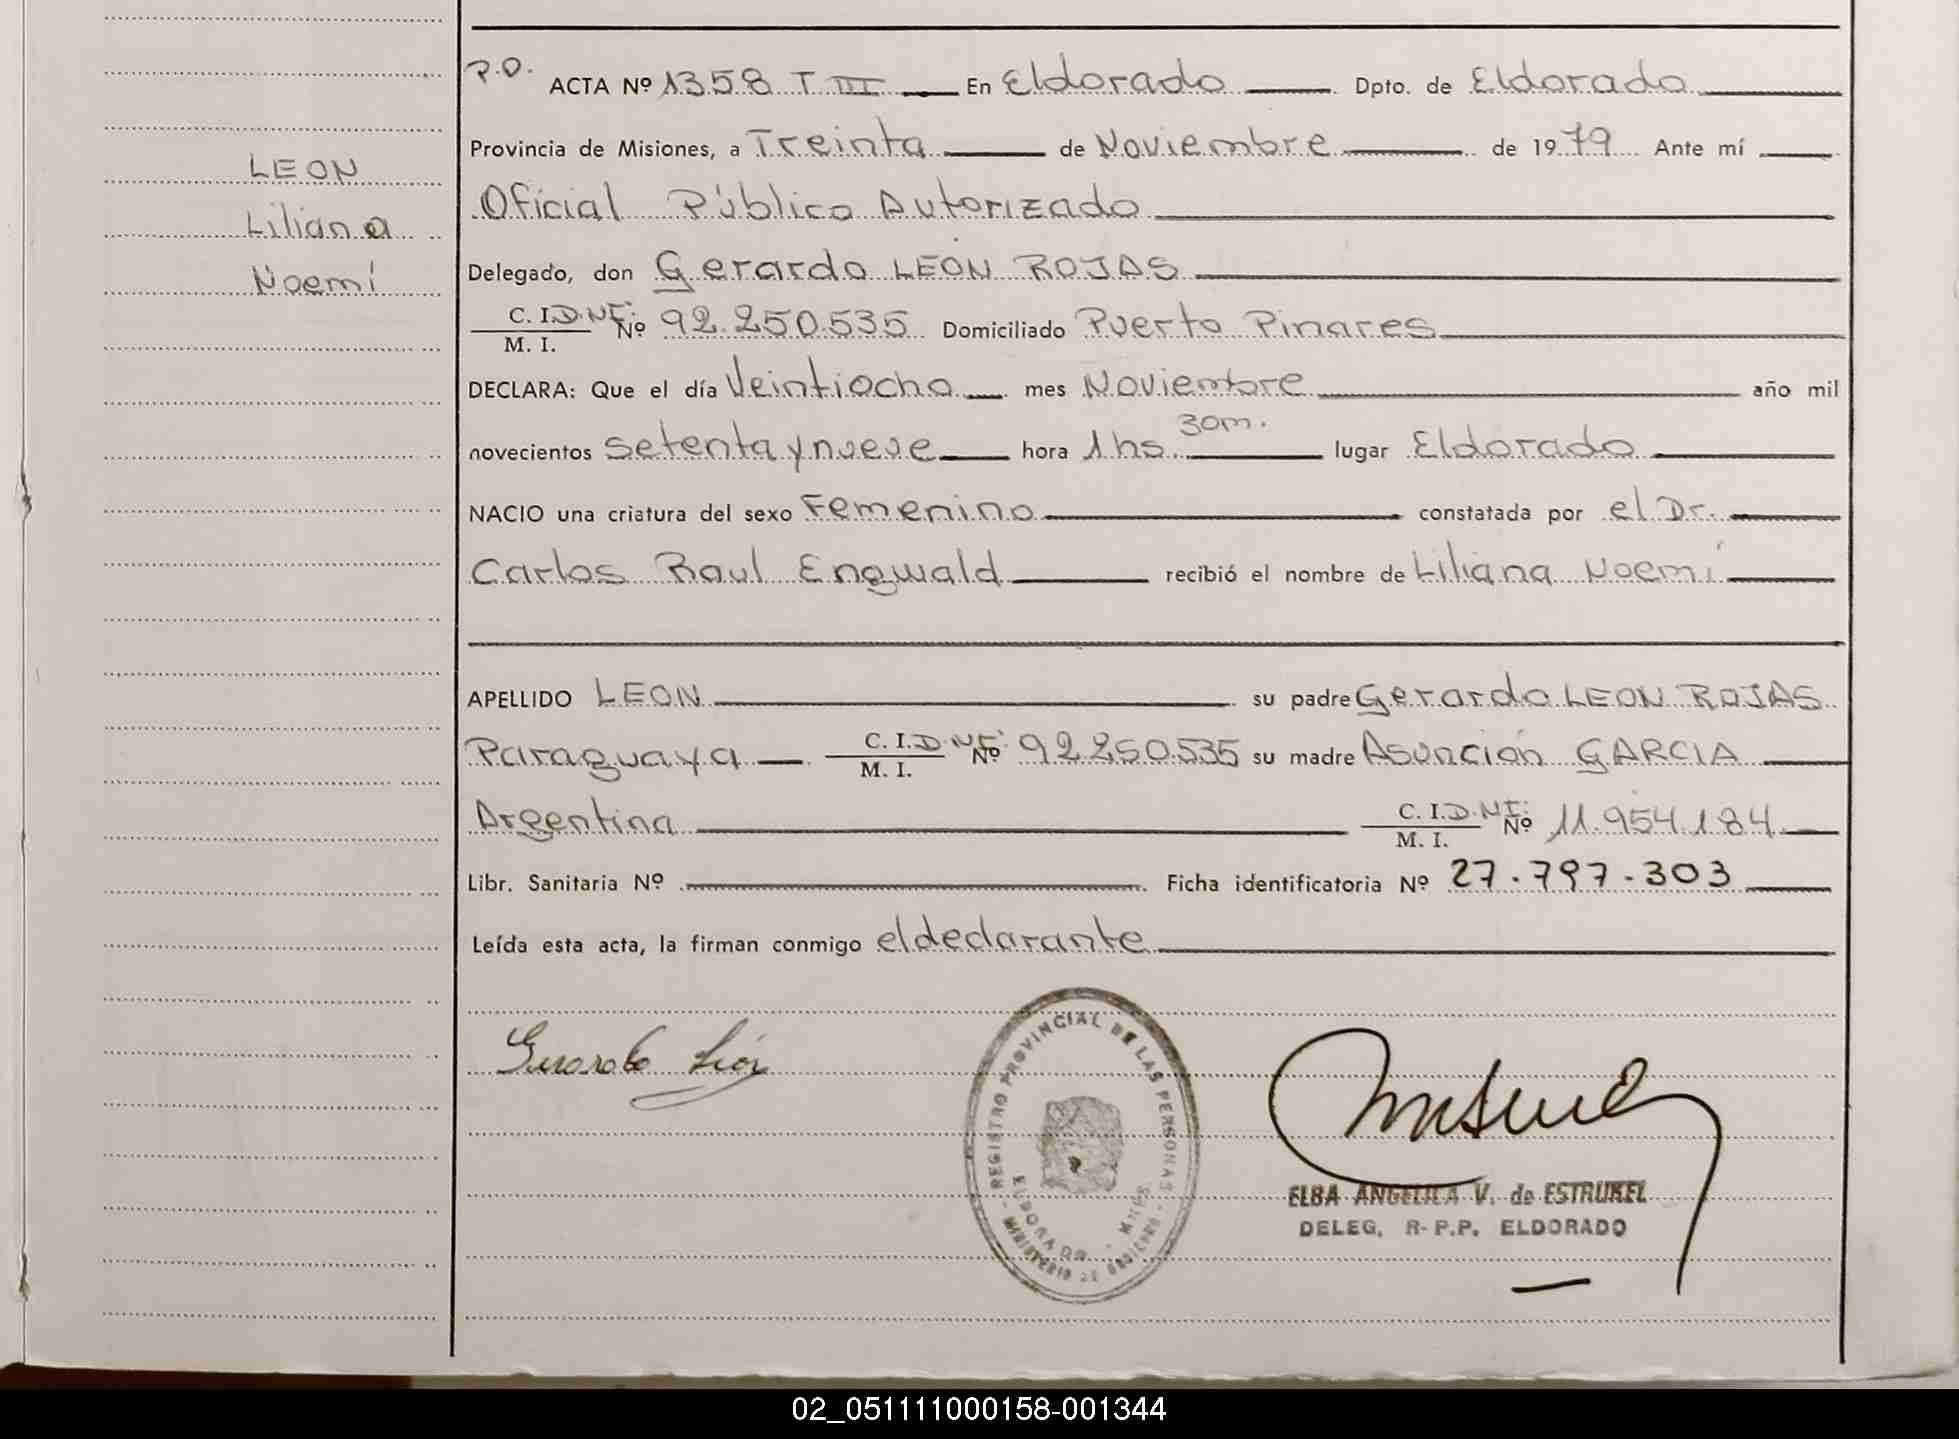 LEON
Liliana
Noemí
P.D. ACTA Nº 1358 T III En Eldorado Dpto. de Eldorado
Provincia de Misiones, a Treinta de Noviembre de 1979 Ante mí
Oficial Público Autorizado
Delegado, don Gerardo LEON ROJAS
C. I. D.N.I. Nº 92.250.535 Domiciliado Puerto Pinares
M. I.
DECLARA: Que el día Veintiocho mes Noviembre año mil
novecientos setenta y nueve hora 1 hs 30m. lugar Eldorado
NACIO una criatura del sexo Femenino constatada por el Dr.
Carlos Raul Engwald recibió el nombre de Liliana Noemí
APELLIDO LEON su padre Gerardo LEON ROJAS
Paraguaya C. I. D.N.I. Nº 92.250.535 su madre Asunción GARCIA
M. I.
Argentina C. I. D.N.I. Nº 11.954.184
M. I.
Libr. Sanitaria Nº Ficha identificatoria Nº 27.797.303
Leída esta acta, la firman conmigo el declarante
Gerardo León
REGISTRO PROVINCIAL DE LAS PERSONAS
ELDORADO - MNES.
MINISTERIO DE GOBIERNO
ELBA ANGELICA V. de ESTRUKEL
DELEG. R-P.P. ELDORADO
02_051111000158-001344